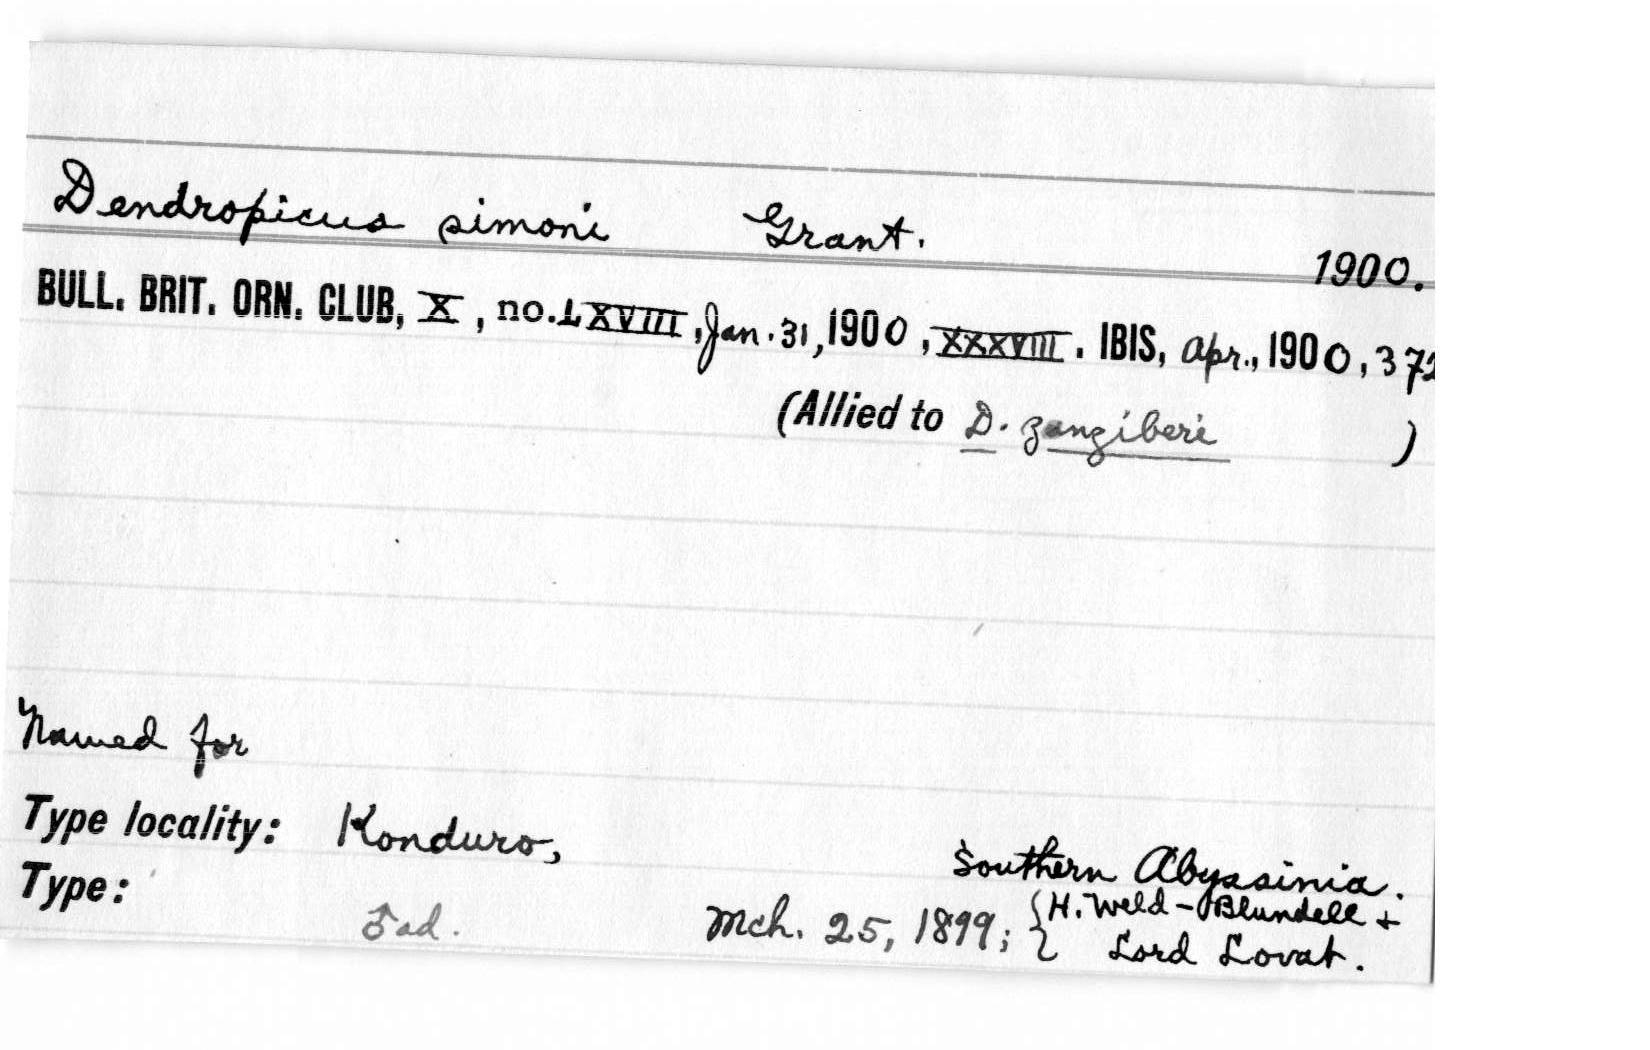 Dendropicus simoni Grant. 1900.
BULL. BRIT. ORN. CLUB, X, no. LXVIII, Jan. 31, 1900, XXXVIII. IBIS, Apr., 1900, 372
(Allied to D. zanzibari )
Named for
Type locality: Konduro, Southern Abyssinia.
Type: ad. Mch. 25, 1899; { H. Weld-Blundell +
Lord Lovat.